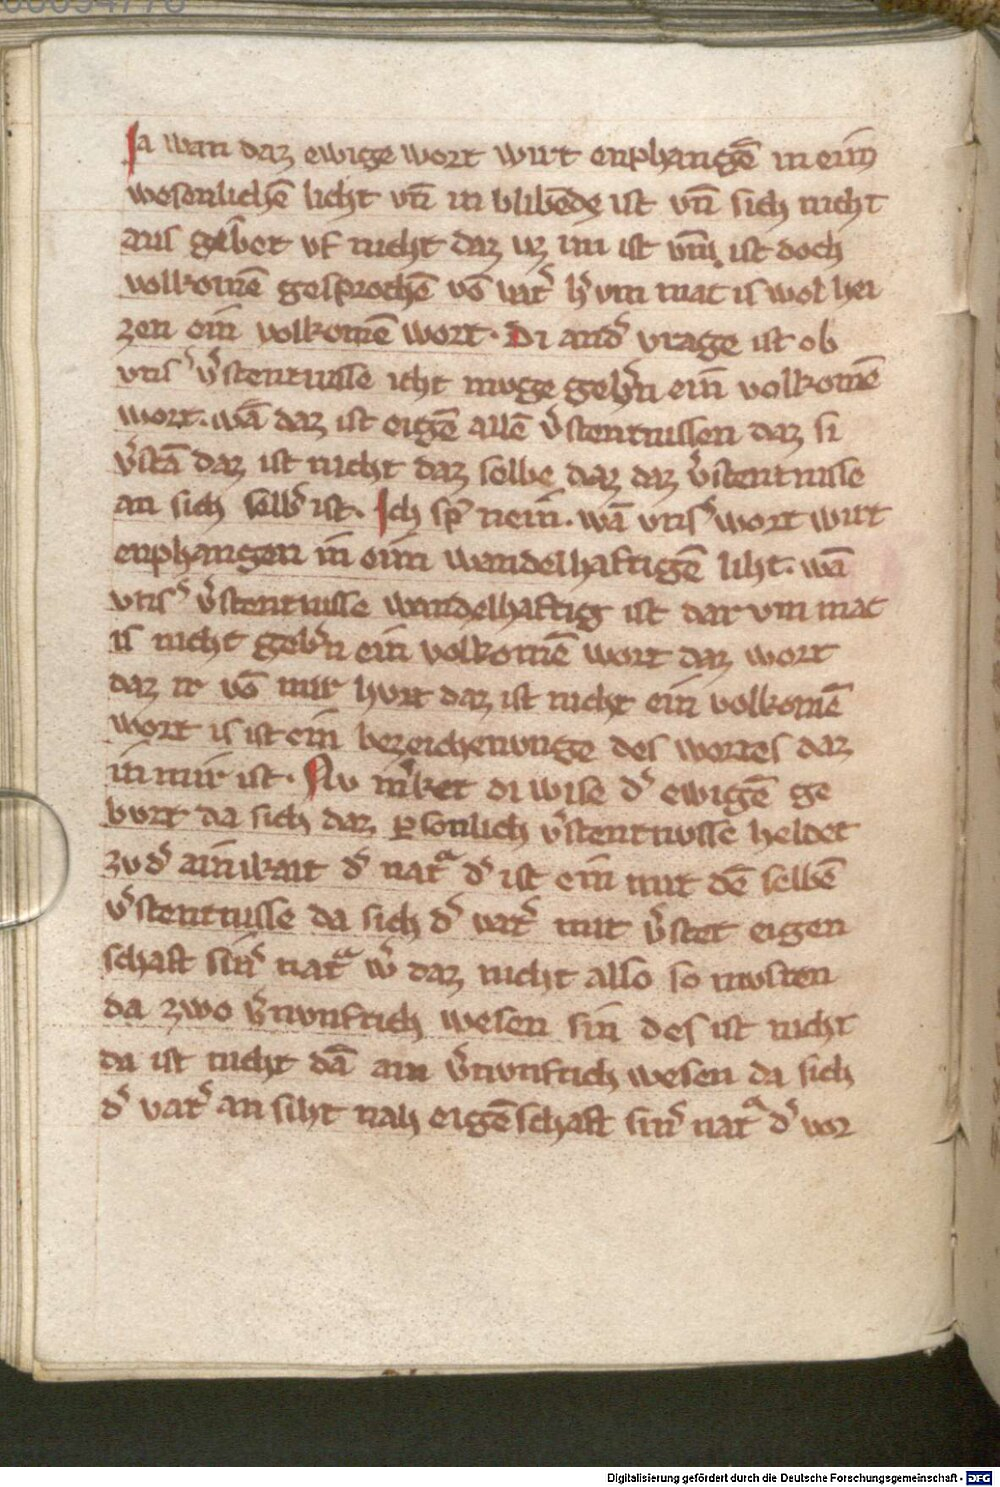 Ja wan daz ewige wort wirt enphangē in eim
wesenlichē licht vn̄ in blibēde ist vn̄ sich nicht
aus geber vf nicht daz iz im ist vm̄ ist doch
volkomē gesprochē vō vat͛ h͛ vm mac is wol hei
zen ein volkomē wort. Di and͛ vrage ist ob
vns͛ v͛stentnisse icht muge geb͛n ein volkomē
wort. wā daz ist eigē allē v͛stentnissen daz si
v͛stā daz ist nicht daz selbe daz daz v͛stentnisse
an sich selb͛ ist. Ich sp͛ nein. wā vns͛ wort wirt
enphangen in eim wandelhaftigē liht. wā
vns͛ v͛stentnisse wandelhaftig ist dar vm mac
is nicht geb͛n ein volkomē wort daz wort
daz ir vō mir hort daz ist nicht ein volkomē
wort is ist ein bezeichenunge des wortes daz
in mir ist. Nv m͛ket di wise d͛ ewigē ge
burt da sich daz ꝑsonlich v͛stentnusse heldet
zv d͛ ainikait d͛ natᵃ d͛ ist ein mit dē selbē
v͛stentnisse da sich d͛ vat͛ mit v͛stet eigen
schaft sin͛ natᵃ w͛ daz nicht also so mvsten
da zwo v͛nvnftich wesen sin des ist nicht
da ist nicht dā ain v͛nvnftich wesen da sich
d͛ vat͛ an siht nah eigēschaft sin͛ natᵃ d͛ vor
Digitalisierung gefördert durch die Deutsche Forschungsgemeinschaft - DFG